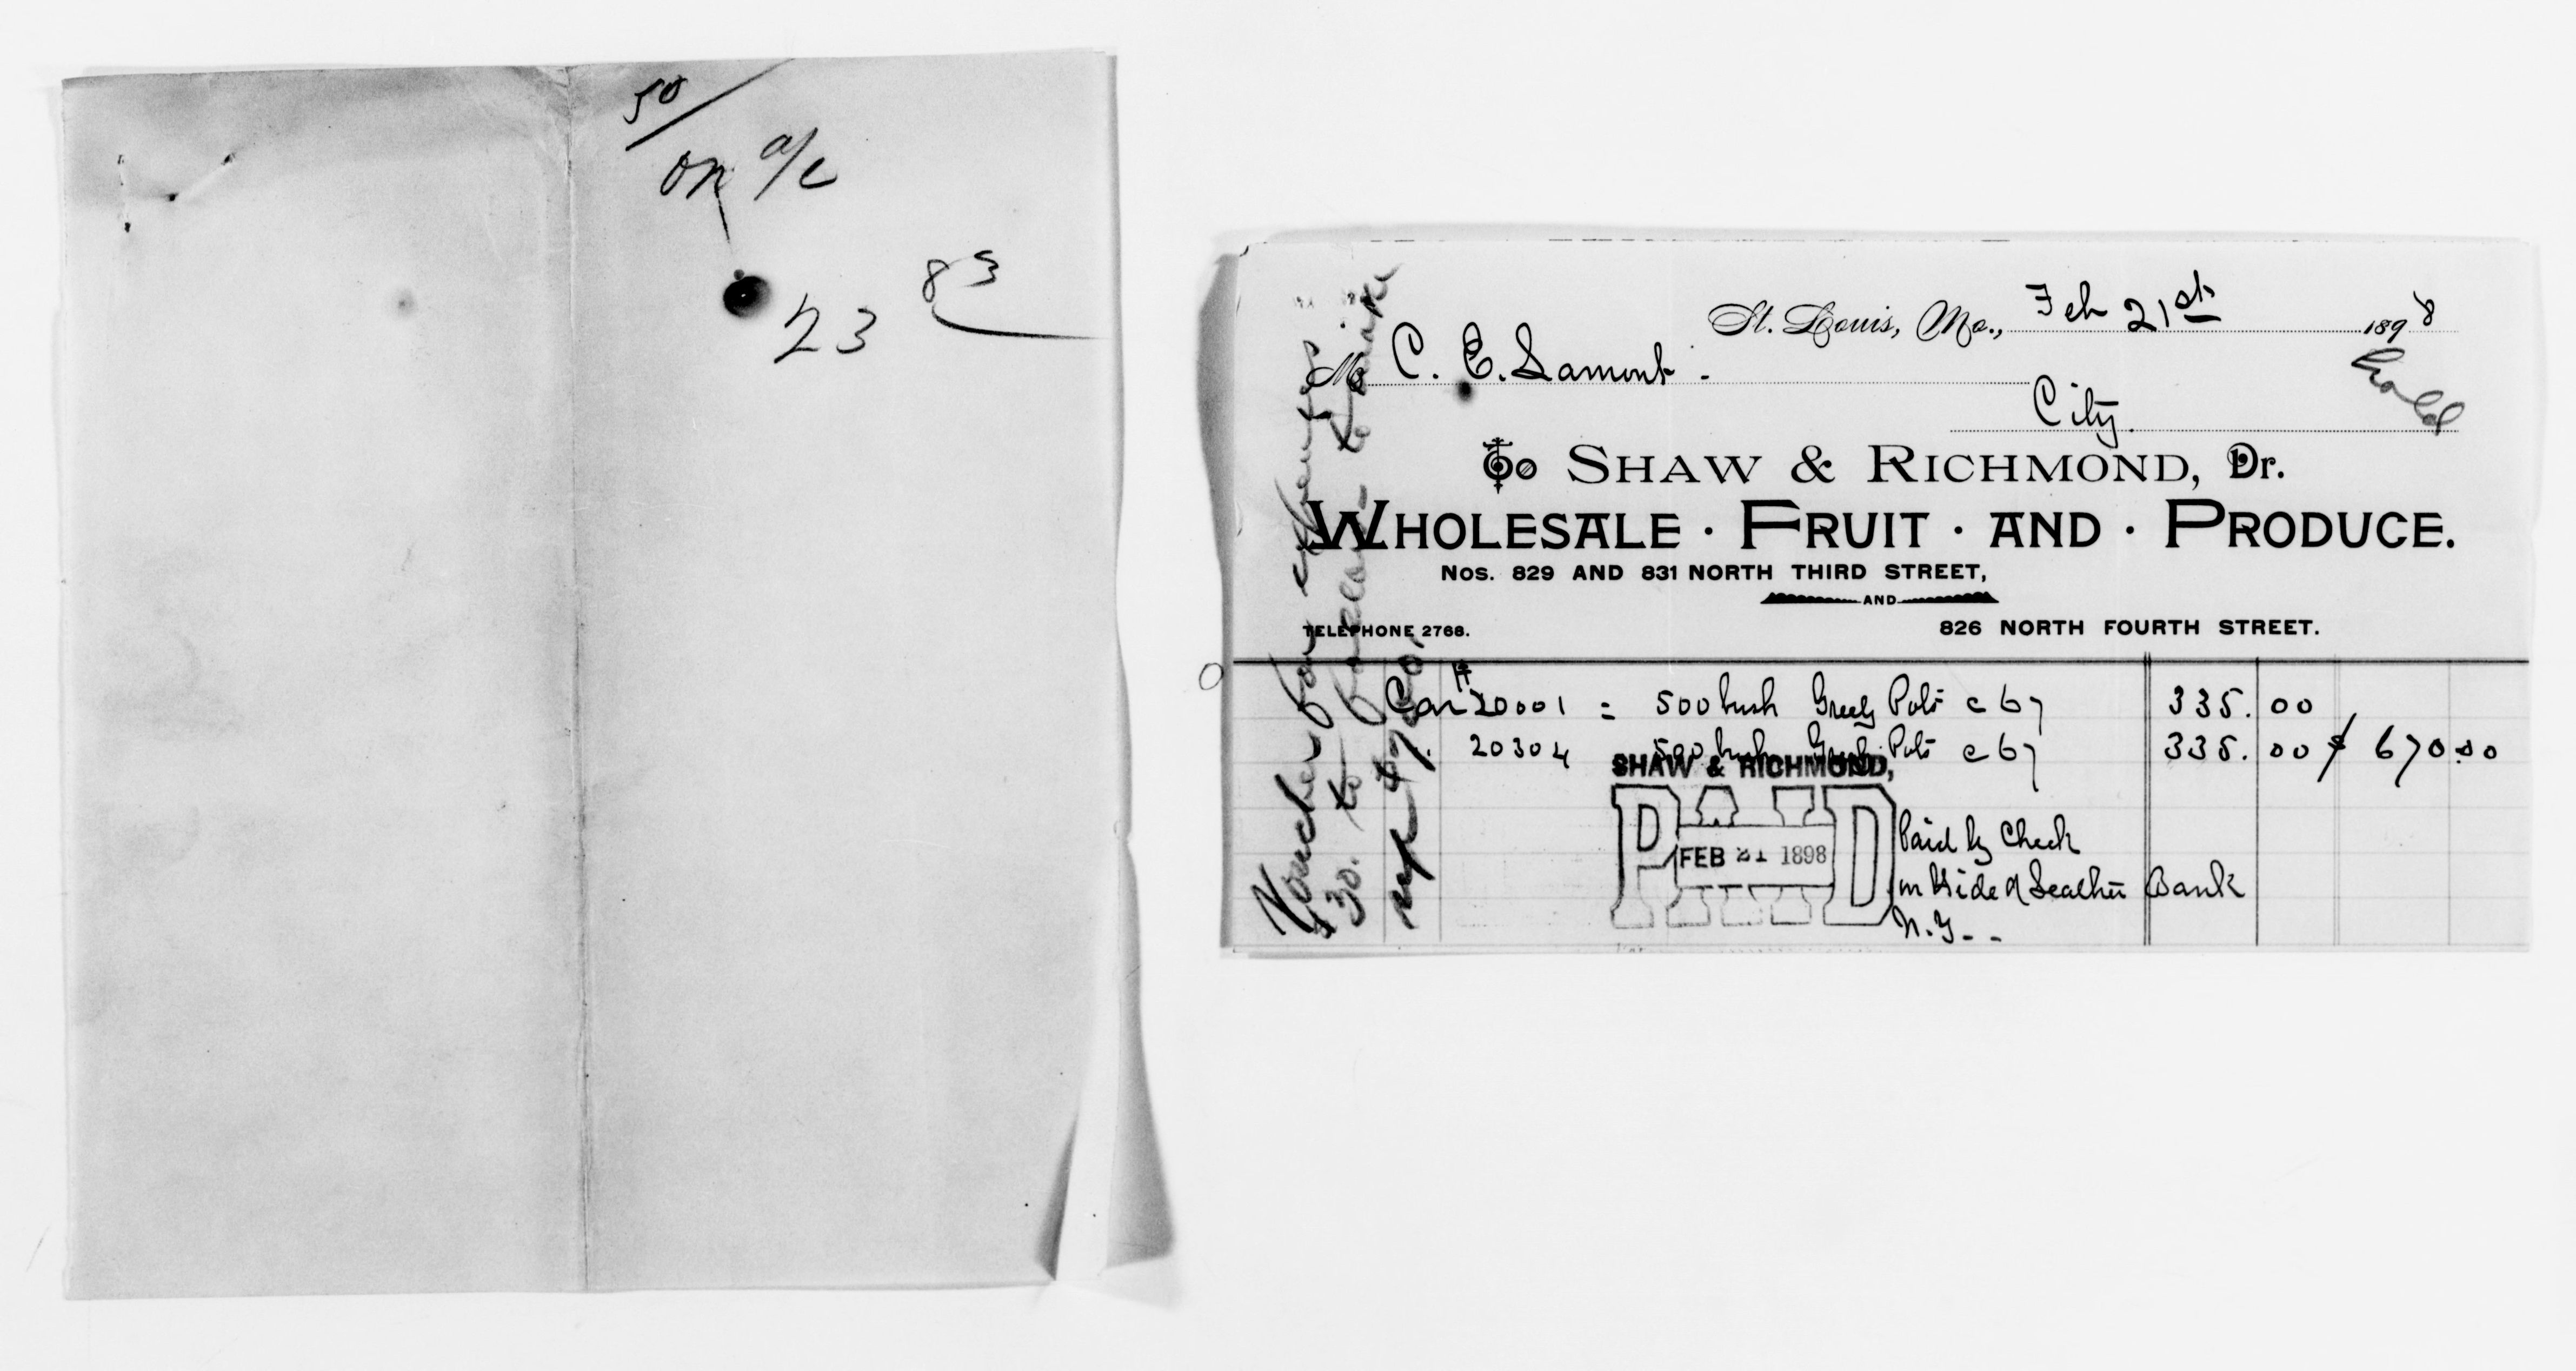 50
on a/c
23 83
St. Louis, Mo., Feb 21st 1898
M C. E. Lamont.
City.
To SHAW & RICHMOND, Dr.
WHOLESALE · FRUIT · AND · PRODUCE.
Nos. 829 AND 831 NORTH THIRD STREET,
AND
TELEPHONE 2768.
826 NORTH FOURTH STREET.
Car # 20001 = 500 bush Greely Pots c 67 335.00
20304 500 bush Greely Pots c 67 335.00 $ 670.00
SHAW & RICHMOND,
PAID
FEB 21 1898
Paid by Check
on Hide & Leather Bank
N.Y. - -
Voucher for
$30. to